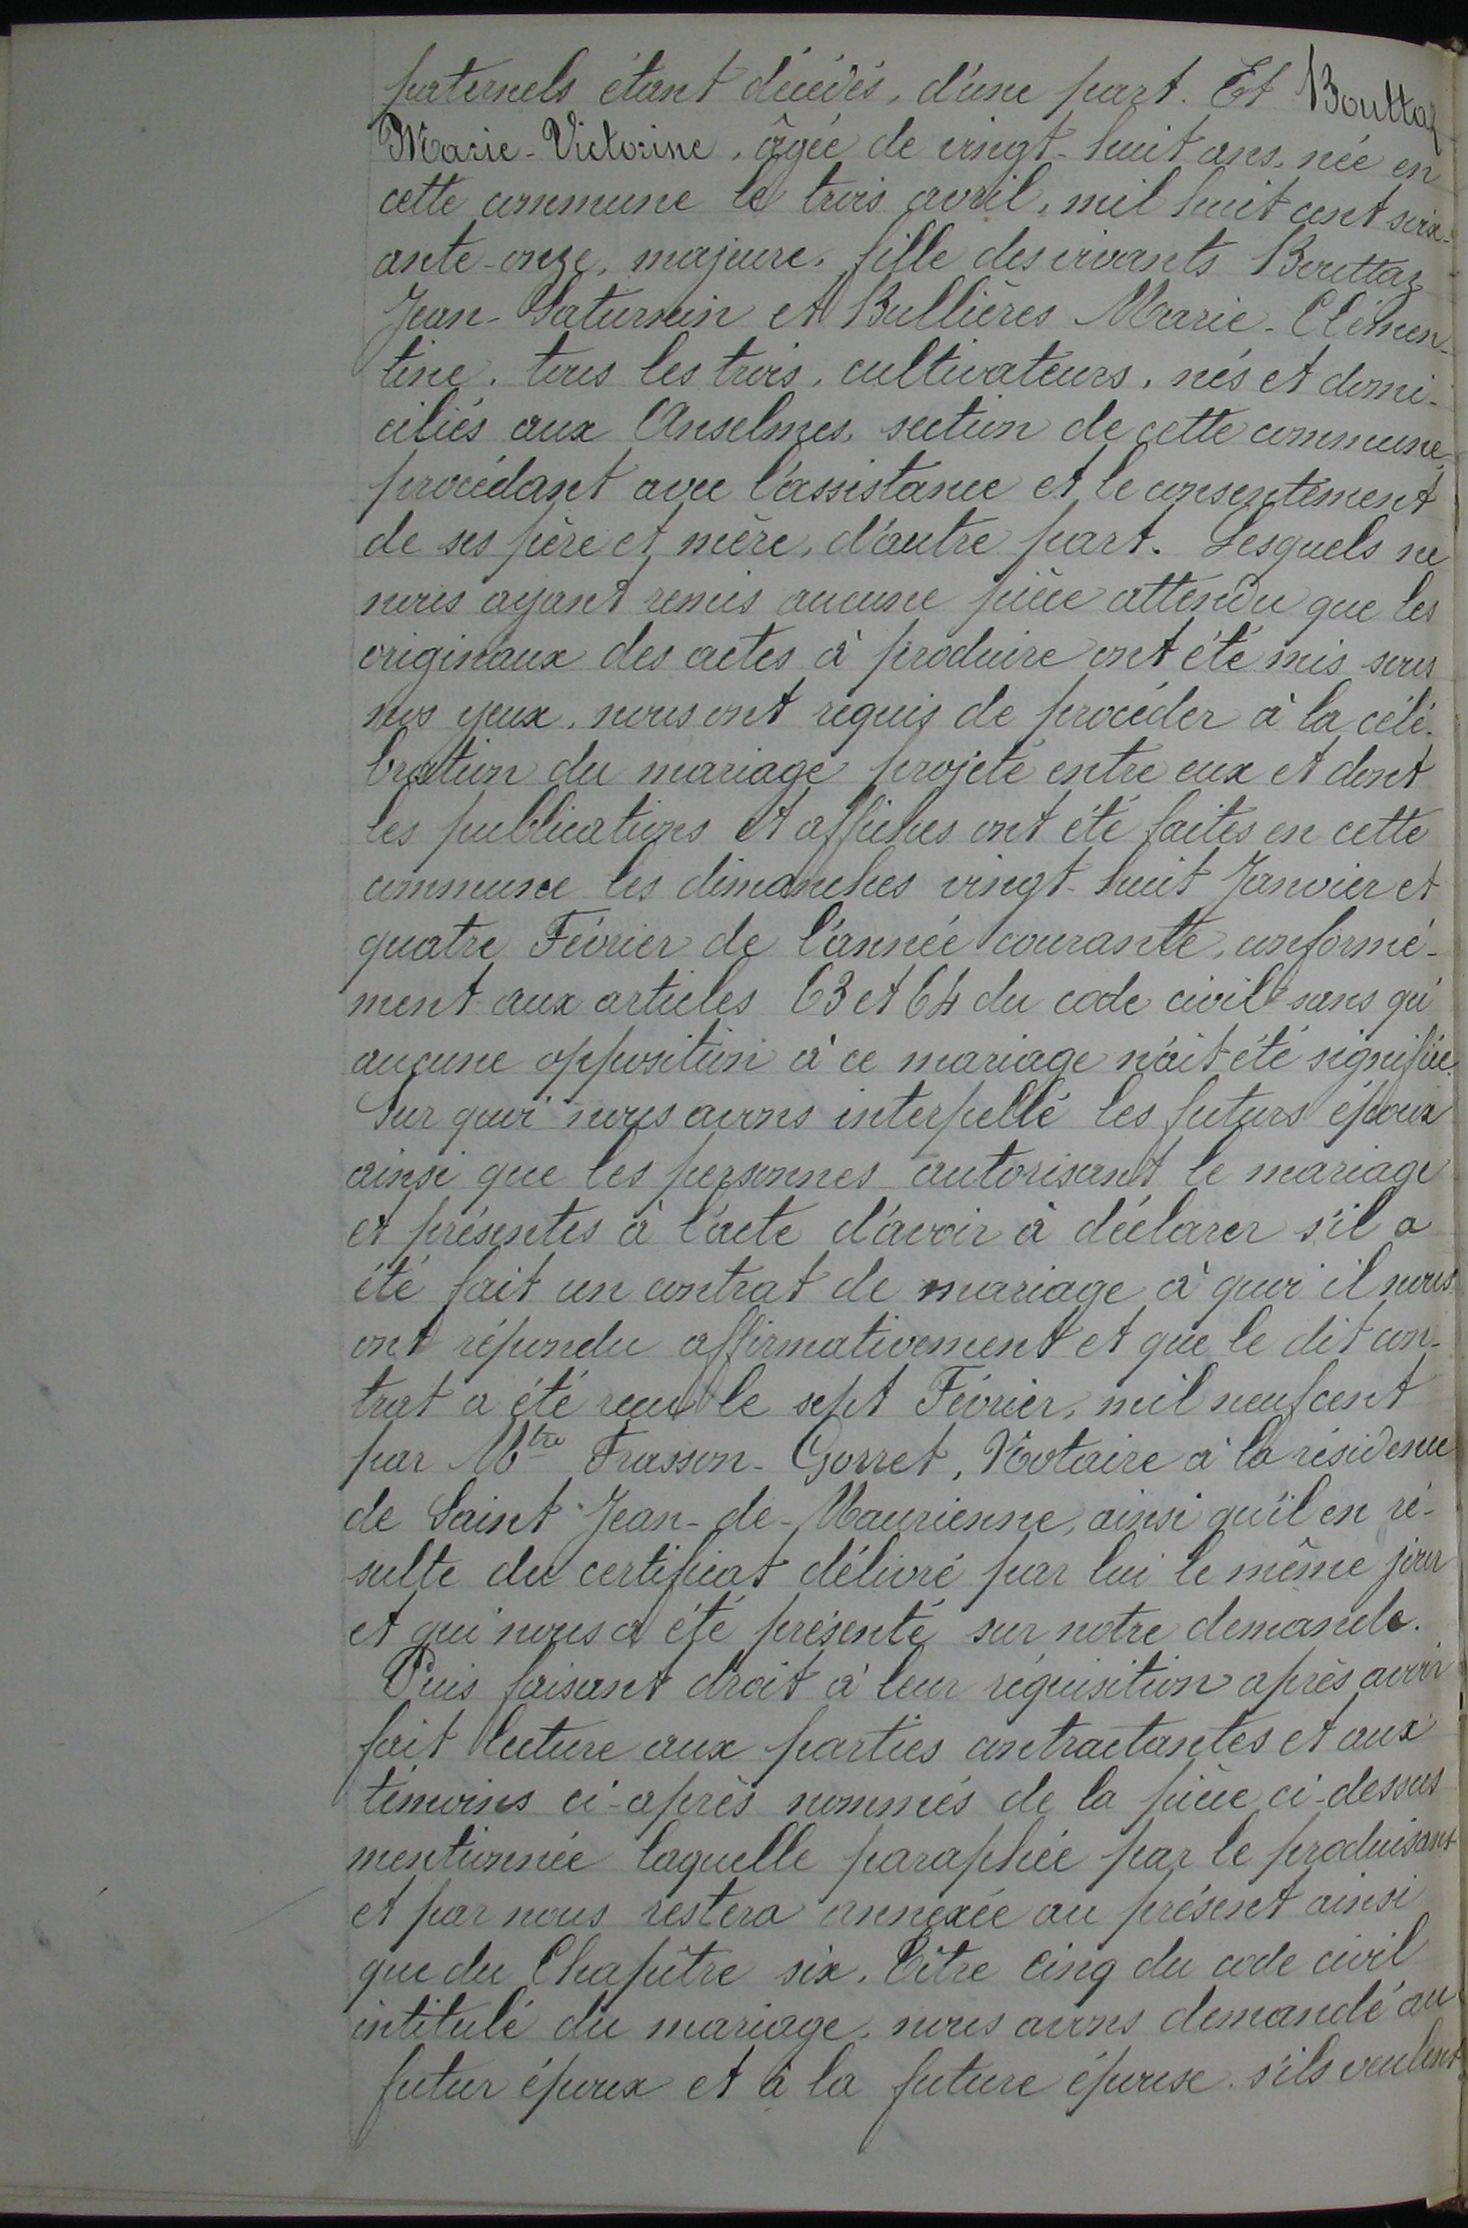 paternels étant décédés, d'une part. Et Bouttaz
Marie-Victorine, âgée de vingt-huit ans, née en
cette commune le trois avril, mil huit cent soix-
ante-onze, majeure, fille des vivants Bouttaz
Jean-Saturnin et Bullières Marie-Clémen-
tine, tous les trois, cultivateurs, nés et domi-
ciliés aux Anselmes, section de cette commune,
procédant avec l'assistance et le consentement
de ses père et mère, d'autre part. Lesquels ne
nous ayant remis aucune pièce attendu que les
originaux des actes à produire ont été mis sous
nos yeux, nous ont requis de procéder à la célé-
bration du mariage projeté entre eux et dont
les publications et affiches ont été faites en cette
commune les dimanches vingt-huit Janvier et
quatre Février de l'année courante, conformé-
ment aux articles 63 et 64 du code civil sans qu'
aucune opposition à ce mariage n'ait été signifiée.
Sur quoi nous avons interpellé les futurs époux
ainsi que les personnes autorisant le mariage
et présentes à l'acte d'avoir à déclarer s'il a
été fait un contrat de mariage à quoi il nous
ont répondu affirmativement et que le dit con-
trat a été reçu le sept Février, mil neuf cent
par Mtre Frasson-Gorret, Notaire à la résidence
de Saint-Jean-de-Maurienne, ainsi qu'il en ré-
sulte du certificat délivré par lui le même jour
et qui nous a été présenté sur notre demande.
Puis faisant droit à leur réquisition après avoir
fait lecture aux parties contractantes et aux
témoins ci-après nommés de la pièce ci-dessus
mentionnée laquelle paraphée par le produisant
et par nous restera annexée au présent ainsi
que du Chapître six, Titre cinq du code civil
intitulé du mariage, nous avons demandé au
futur époux et à la future épouse s'ils veulent